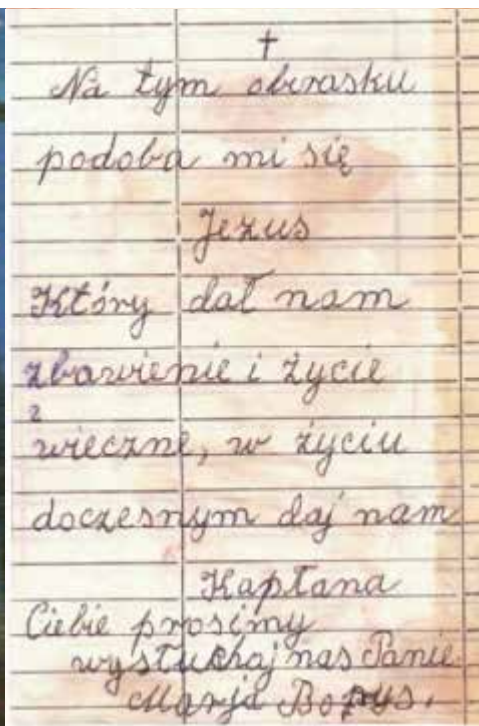 †
Na tym obrasku
podoba mi się
Jezus
Który dał nam
zbawienie i życie
wieczne, w życiu
doczesnym daj nam
Kapłana
Ciebie prosimy
wysłuchaj nas Panie
Marja